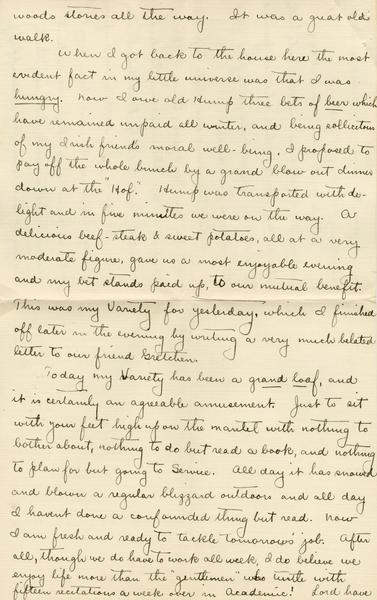 woods stories all the way. It was a great old
walk.
When I got back to the house here the most
evident fact in my little universe was that I was
hungry. Now I owe old Hump three bets of beer which
have remained unpaid all winter, and being sollicitous
of my Irish friends moral well-being, I proposed to
pay off the whole bunch by a grand blow out dinner
down at the "Hof." Hump was transported with de-
light and in five minutes we were on the way. A
delicious beef-steak & sweet potatoes, all at a very
moderate figure, gave us a most enjoyable evening
and my bet stands paid up, to our mutual benefit.
This was my Variety for yesterday, which I finished
off later in the evening by writing a very much belated
letter to our friend Gretchen.
Today my Variety has been a grand loaf, and
it is certainly an agreeable amusement. Just to sit
with your feet high up on the mantel with nothing to
bother about, nothing to do but read a book, and nothing
to plan for but going to Service. All day it has snowed
and blown a regular blizzard outdoors and all day
I havent done a confounded thing but read. Now
I am fresh and ready to tackle tomorrows' job. After
all, though we do have to work all week, I do believe we
enjoy life more than the "gentlemen" who with
fifteen recitations a week over in Academic! Lord have